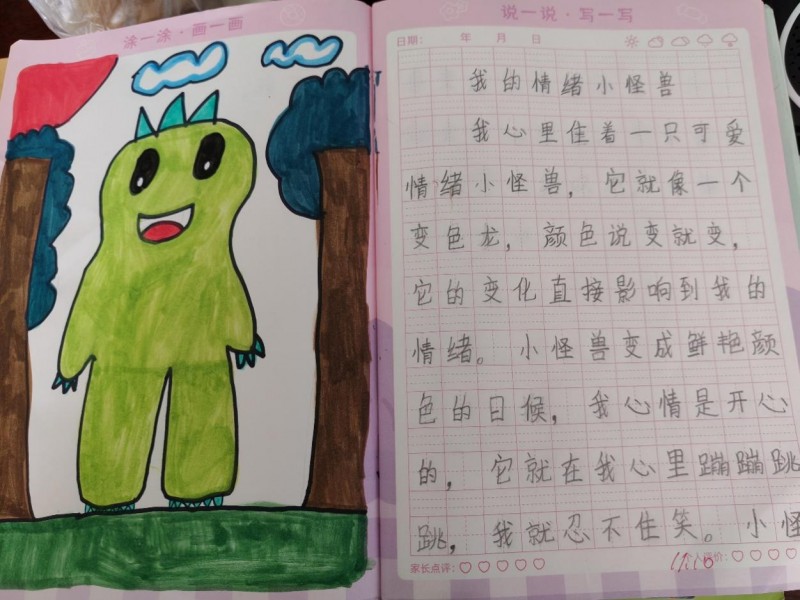 涂一涂·画一画
说一说·写一写
日期： 年 月 日
我的情绪小怪兽
我心里住着一只可爱
情绪小怪兽，它就像一个
变色龙，颜色说变就变，
它的变化直接影响到我的
情绪。小怪兽变成鲜艳颜
色的日候，我心情是开心
的，它就在我心里蹦蹦跳
跳，我就忍不住笑。小怪
家长点评： 个人评价：